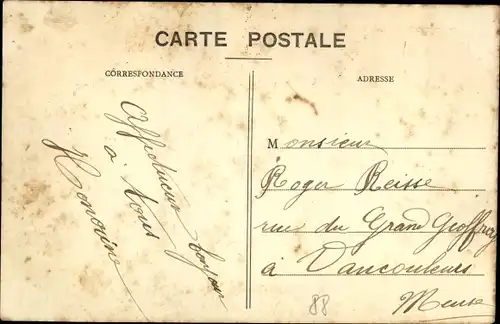 CARTE POSTALE
CORRESPONDANCE
ADRESSE
Affectueux bonjour
à tous
Honorine
Monsieur
Roger Reisse
rue du Grand Geoffroy
à Vaucouleurs
Meuse
88